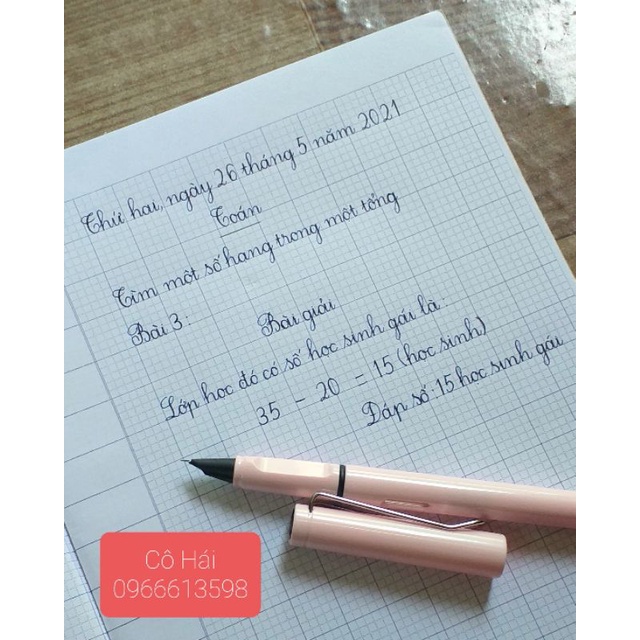 Thứ hai, ngày 26 tháng 5 năm 2021
Toán
Tìm một số hạng trong một tổng
Bài 3:
Bài giải
Lớp học đó có số học sinh gái là:
35 - 20 = 15 (học sinh)
Đáp số: 15 học sinh gái
Cô Hái
0966613598